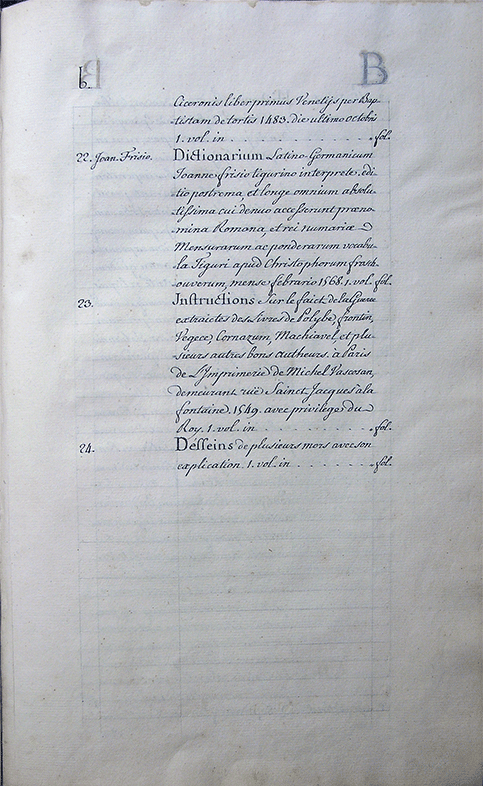 b. B
Ciceronis liber primus Venetijs per Bap-
tistam de tortis 1483. die ultimo octobris
1. vol. in . . . . . . . . fol.
22. Joan. Frisio. Dictionarium Latino-Germanicum
Joanne frisio tigurino interprete. edi-
tio postrema, et longe omnium absolu-
tissima cui denuo accesserunt præno-
mina Romana, et rei numariæ
Mensurarum ac ponderarum vocabu-
la Tiguri apud Christophorum frosch-
ouverum, mense febrario 1568. 1. vol. fol.
23. Instructions sur le faict de la Guerre
extraictes des Livres de Polybe, frontin,
Vegece, Cornazum, Machiavel, et plu-
sieurs autres bons autheurs. à Paris
de L'Imprimerie de Michel Vascosan,
demeurant ruë Sainct Jacques à la
fontaine. 1549. avec privilege du
Roy. 1. vol. in . . . . . . fol.
24. Desseins de plusieurs mors avec son
explication. 1. vol. in . . . . . . fol.